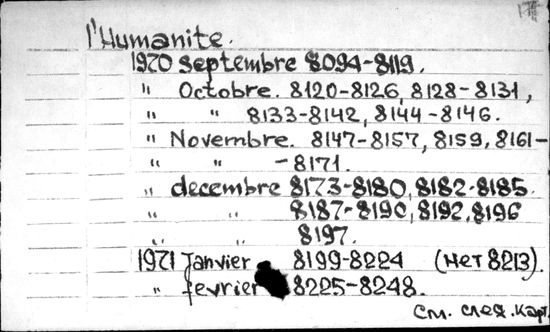 l'Humanite.
1970 septembre 8094-8119.
" Octobre. 8120-8126, 8128-8131,
" " 8133-8142, 8144-8146.
" Novembre. 8147-8157, 8159, 8161-
" " -8171.
" decembre 8173-8180, 8182-8185.
" " 8187-8190, 8192, 8196
" " 8197.
1971 Janvier 8199-8224 (нет 8213).
" fevrier 8225-8248.
См. след. карт.